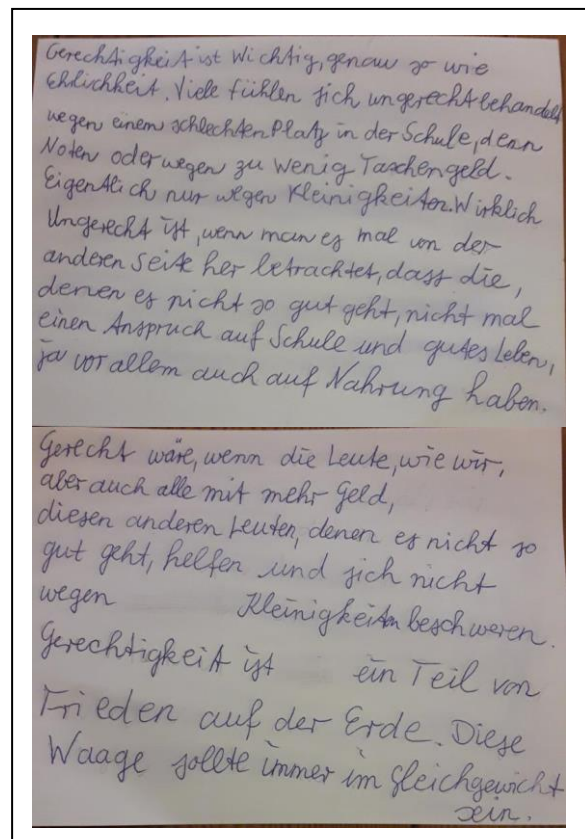 Gerechtigkeit ist wichtig, genau so wie
Ehlichkeit. Viele fühlen sich ungerecht behandelt
wegen einem schlechten Platz in der Schule, denn
Noten oder wegen zu wenig Taschengeld.
Eigentlich nur wegen Kleinigkeiten. Wirklich
Ungerecht ist, wenn man es mal von der
anderen Seite her betrachtet, dass die,
denen es nicht so gut geht, nicht mal
einen Anspruch auf Schule und gutes Leben,
ja vor allem auch auf Nahrung haben.
Gerecht wäre, wenn die Leute, wie wir,
aber auch alle mit mehr Geld,
diesen anderen Leuten, denen es nicht so
gut geht, helfen und sich nicht
wegen Kleinigkeiten beschweren.
Gerechtigkeit ist ein Teil von
Frieden auf der Erde. Diese
Waage sollte immer im Gleichgewicht
sein.